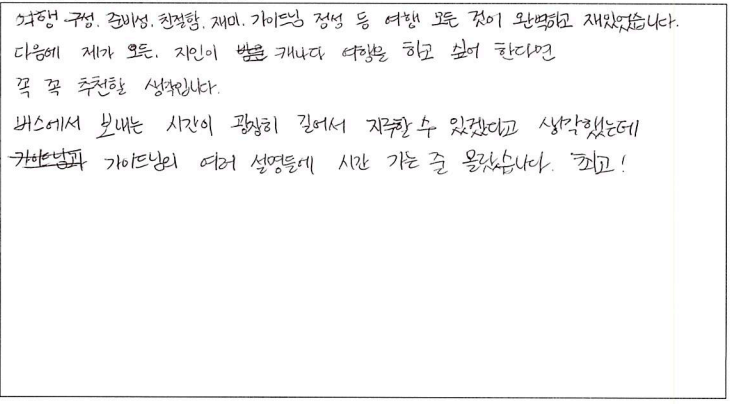 여행 구성, 준비성, 친절함, 재미, 가이드님 정성 등 여행 모든 것이 완벽하고 재밌었습니다.
다음에 제가 오든, 지인이 캐나다 여행을 하고 싶어 한다면
꼭 꼭 추천할 생각입니다.
버스에서 보내는 시간이 굉장히 길어서 지루할 수 있겠다고 생각했는데
가이드님과 가이드님의 여러 설명들에 시간 가는 줄 몰랐습니다. 최고!